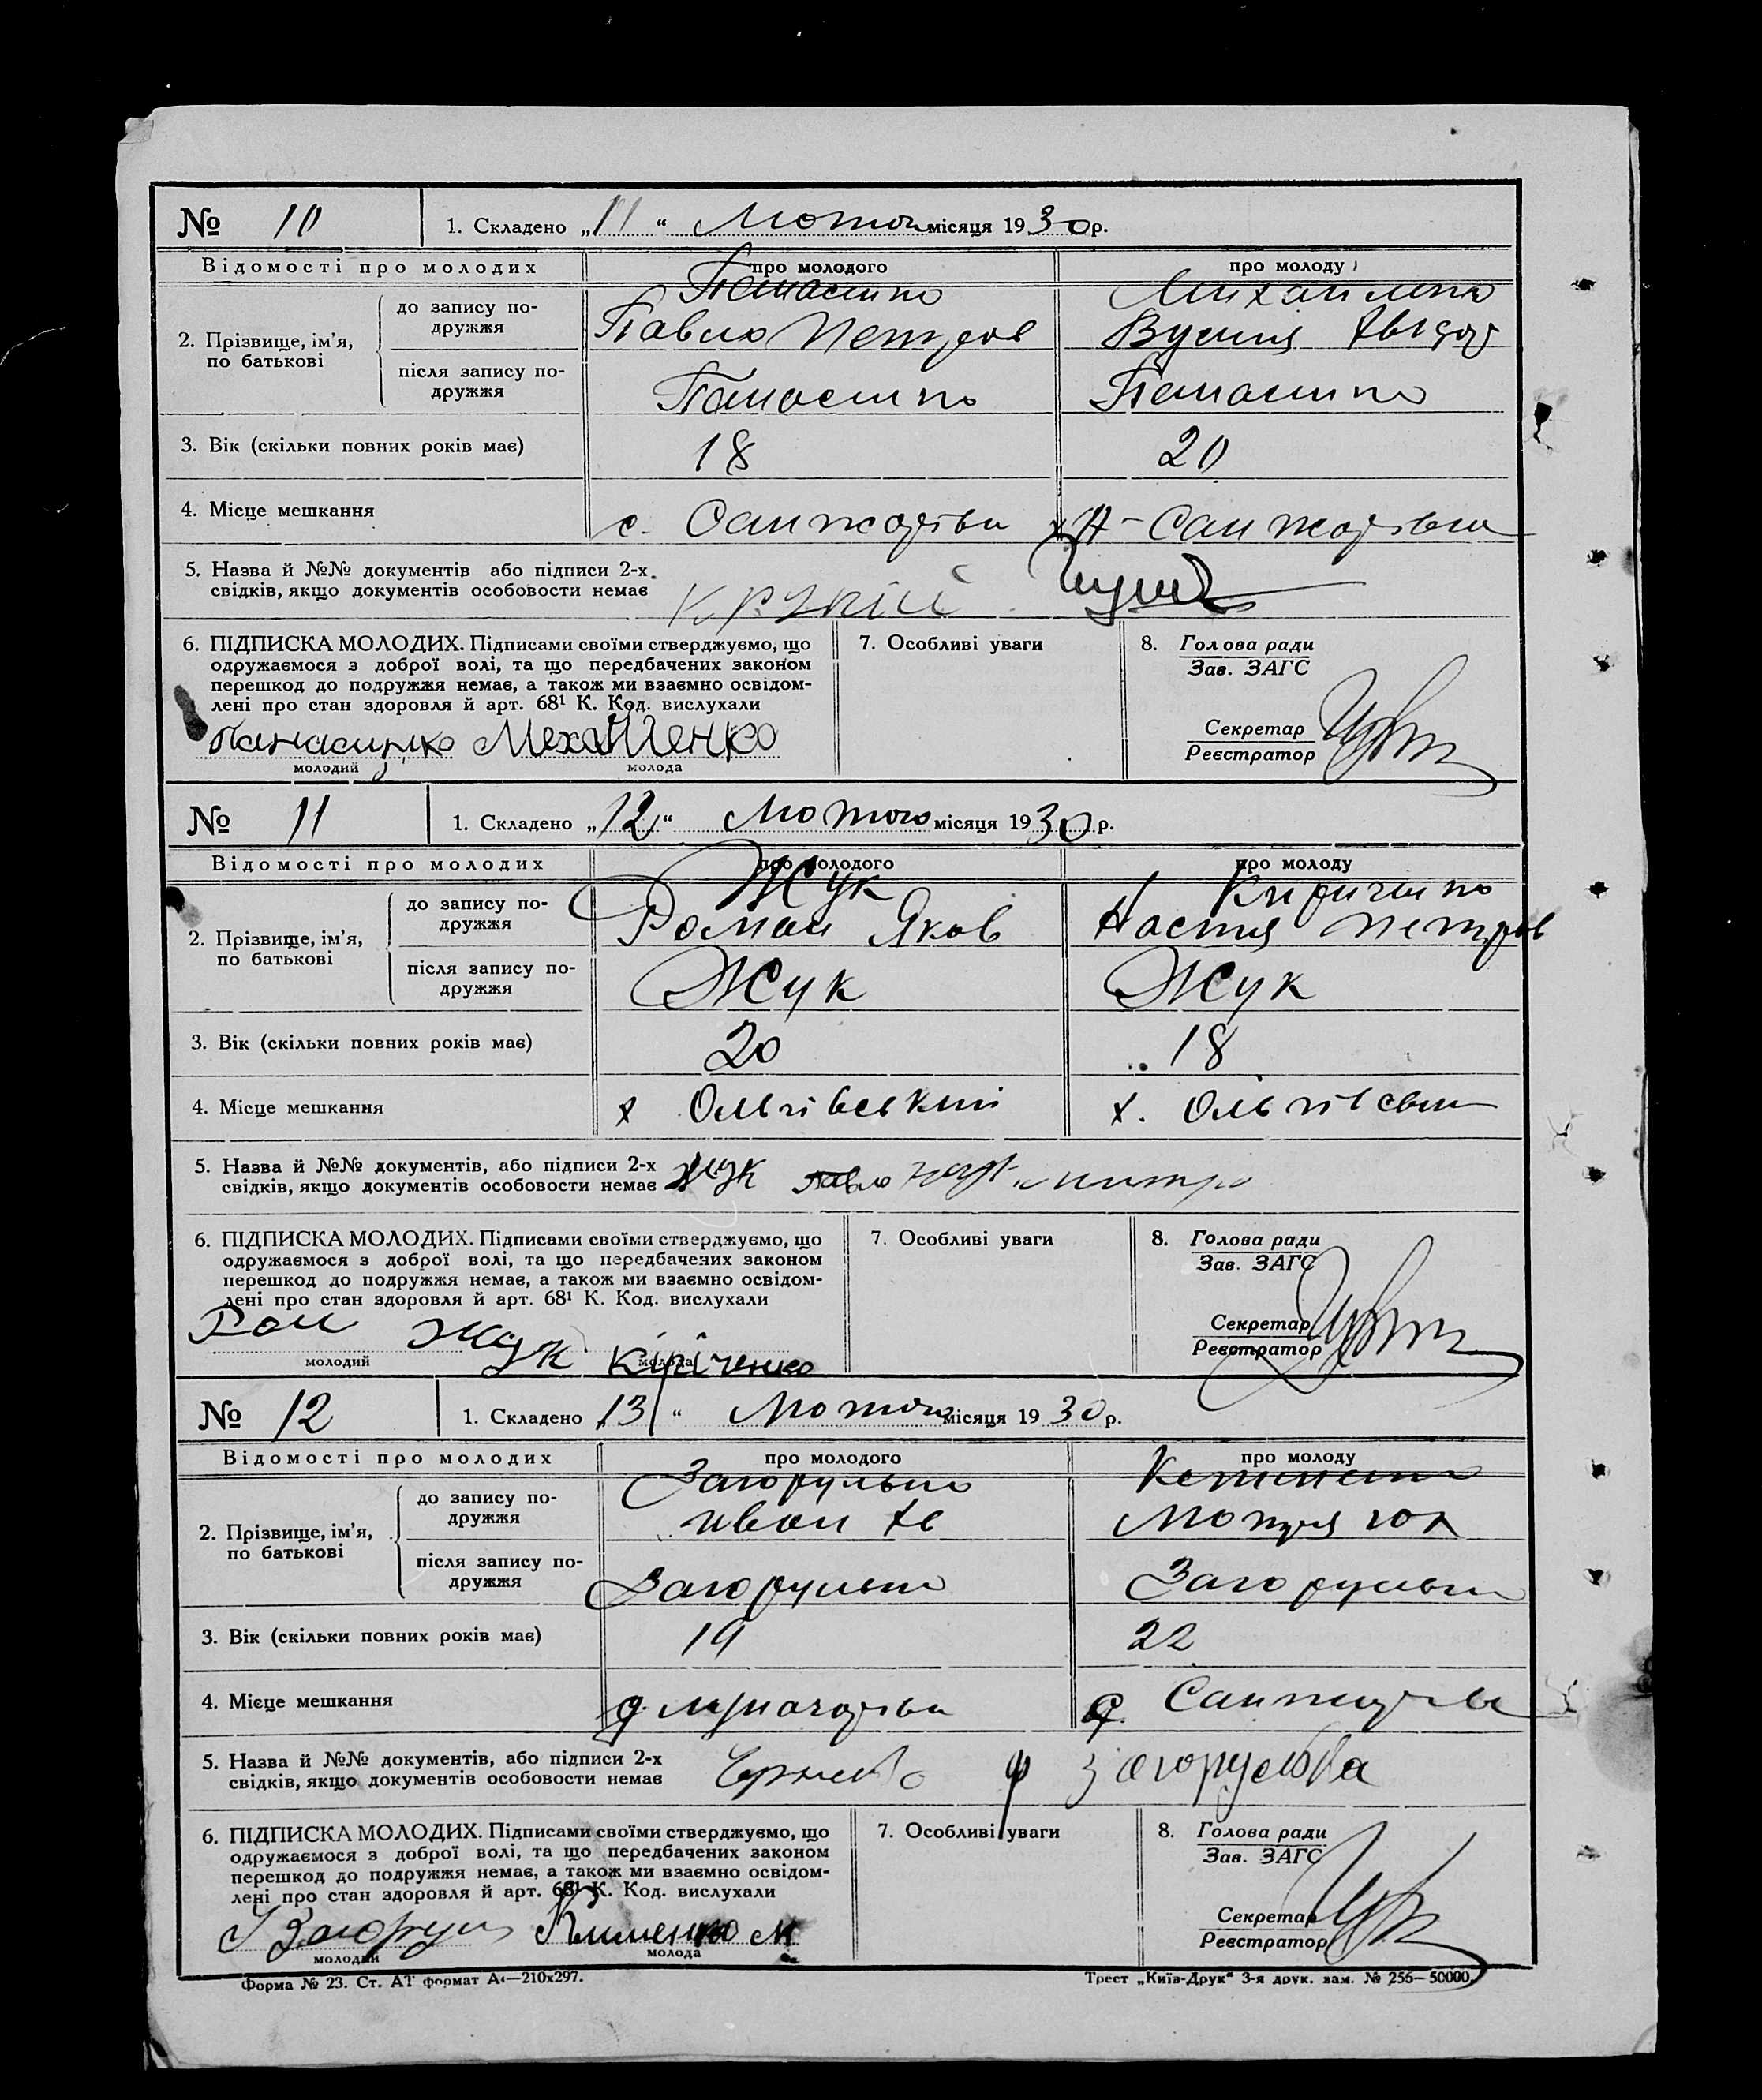 № 10 1. Складено „11“ Лютого місяця 1930 р.
Відомості про молодих про молодого про молоду
2. Прізвище, ім'я, по батькові
до запису подружжя Панасенко Павло Петров Михайленко
після запису подружжя Панасенко Панасенко
3. Вік (скільки повних років має) 18 20
4. Місце мешкання с.
5. Назва й №№ документів або підписи 2-х
свідків, якщо документів особовости немає
6. ПІДПИСКА МОЛОДИХ. Підписами своїми стверджуємо, що 7. Особливі уваги 8. Голова ради
одружаємося з доброї волі, та що передбачених законом Зав. ЗАГС
перешкод до подружжя немає, а також ми взаємно освідом-
лені про стан здоров'я й арт. 68¹ К. Код. вислухали
Секретар
Реєстратор
молодий молода
№ 11 1. Складено „12“ Лютого місяця 1930 р.
Відомості про молодих про молодого про молоду
2. Прізвище, ім'я, по батькові
до запису подружжя Жук Роман Яков Кириченко Настя Петров
після запису подружжя Жук Жук
3. Вік (скільки повних років має) 20 18
4. Місце мешкання х Ольгівський х.
5. Назва й №№ документів, або підписи 2-х
свідків, якщо документів особовости немає Жук Павло
6. ПІДПИСКА МОЛОДИХ. Підписами своїми стверджуємо, що 7. Особливі уваги 8. Голова ради
одружаємося з доброї волі, та що передбачених законом Зав. ЗАГС
перешкод до подружжя немає, а також ми взаємно освідом-
лені про стан здоров'я й арт. 68¹ К. Код. вислухали
Секретар
Реєстратор
Ром Жук Кіріченко
молодий молода
№ 12 1. Складено „13“ Лютого місяця 1930 р.
Відомості про молодих про молодого про молоду
2. Прізвище, ім'я, по батькові
до запису подружжя Загорулько Иван Мотря
після запису подружжя Загорулько Загорулько
3. Вік (скільки повних років має) 19 22
4. Місце мешкання
5. Назва й №№ документів, або підписи 2-х
свідків, якщо документів особовости немає
6. ПІДПИСКА МОЛОДИХ. Підписами своїми стверджуємо, що 7. Особливі уваги 8. Голова ради
одружаємося з доброї волі, та що передбачених законом Зав. ЗАГС
перешкод до подружжя немає, а також ми взаємно освідом-
лені про стан здоров'я й арт. 68¹ К. Код. вислухали
Секретар
Реєстратор
Клименко М
молодий молода
Форма № 23. Ст. АТ формат А₄—210х297. Трест „Київ-Друк“ 3-я друк. зам. № 256—50000.